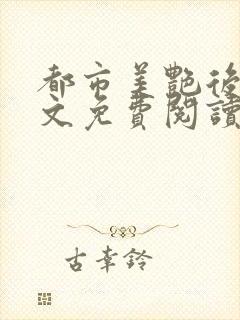 都市美艷後
文免費閱讀
古幸鈴